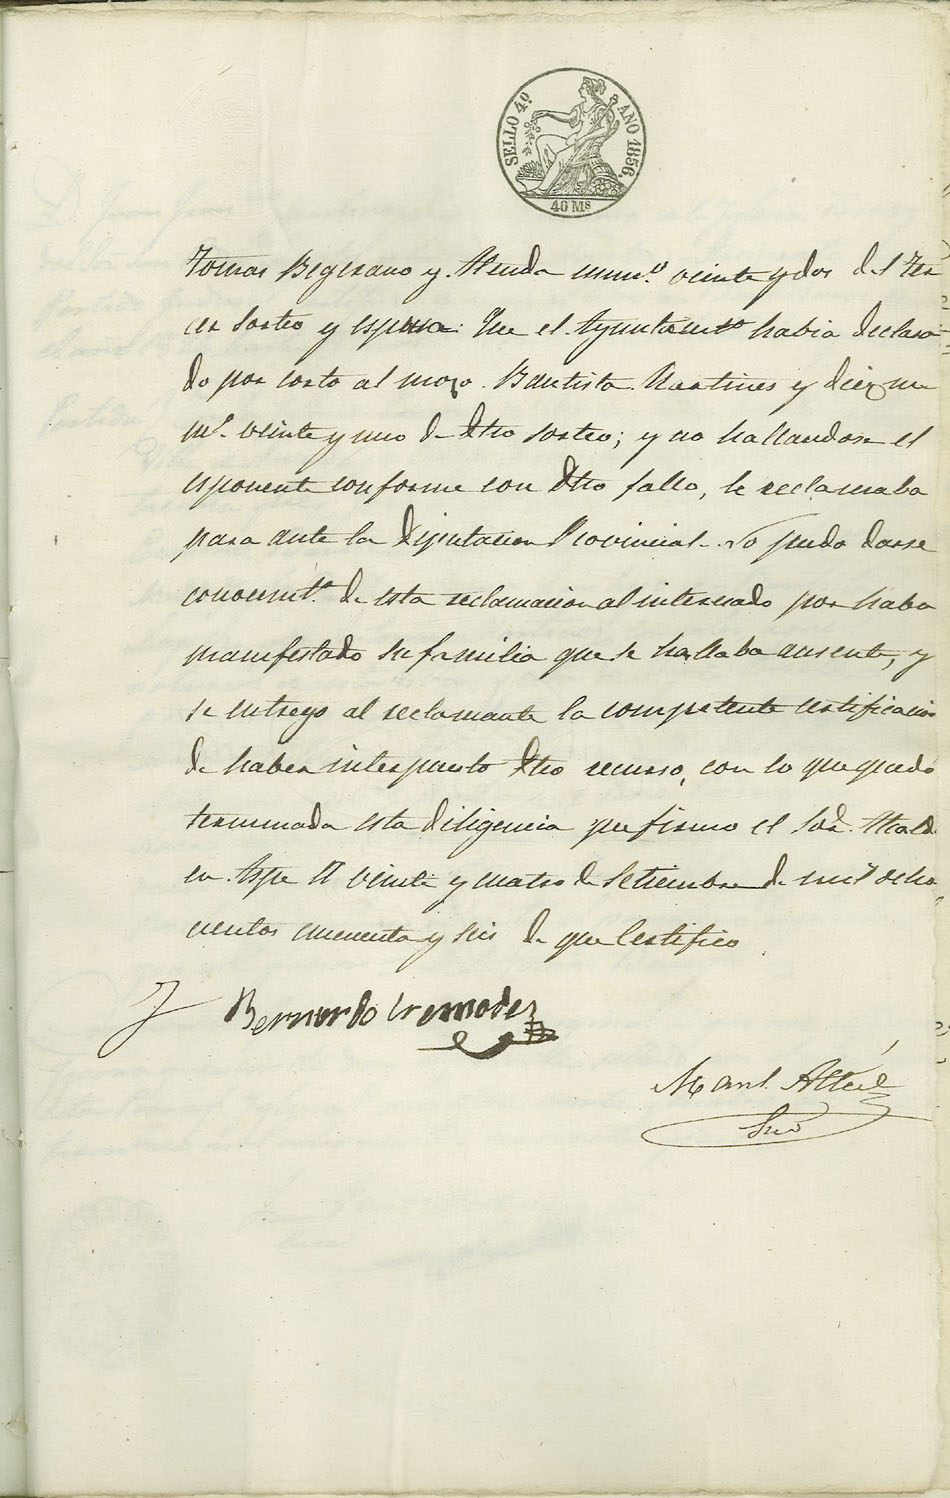 SELLO 4º. AÑO 1856.
40 Ms
Tomas Begerano y Almda numº veinte y dos del Ter
cer Sorteo y espuso: Que el Ayuntamto habia declara-
do por corto al mozo Bautista Martines y Diez nu
mº. veinte y uno de dho sorteo; y no hallandose el
esponente conforme con dho fallo, le reclamaba
para ante la Diputacion Provincial. No pudo darse
conocimtº. de esta reclamacion al interesado por haber
manifestado su familia que se hallaba ausente, y
se entrego al reclamante la competente certificacion
de haber interpuesto dho recurso, con lo que quedó
terminada esta diligencia que firmo el Sor. Alcalde
en Aspe a veinte y cuatro de Setiembre de mil ocho
cientos cincuenta y seis de que Certifico
Bernardo Cremades
Manl.
Srio